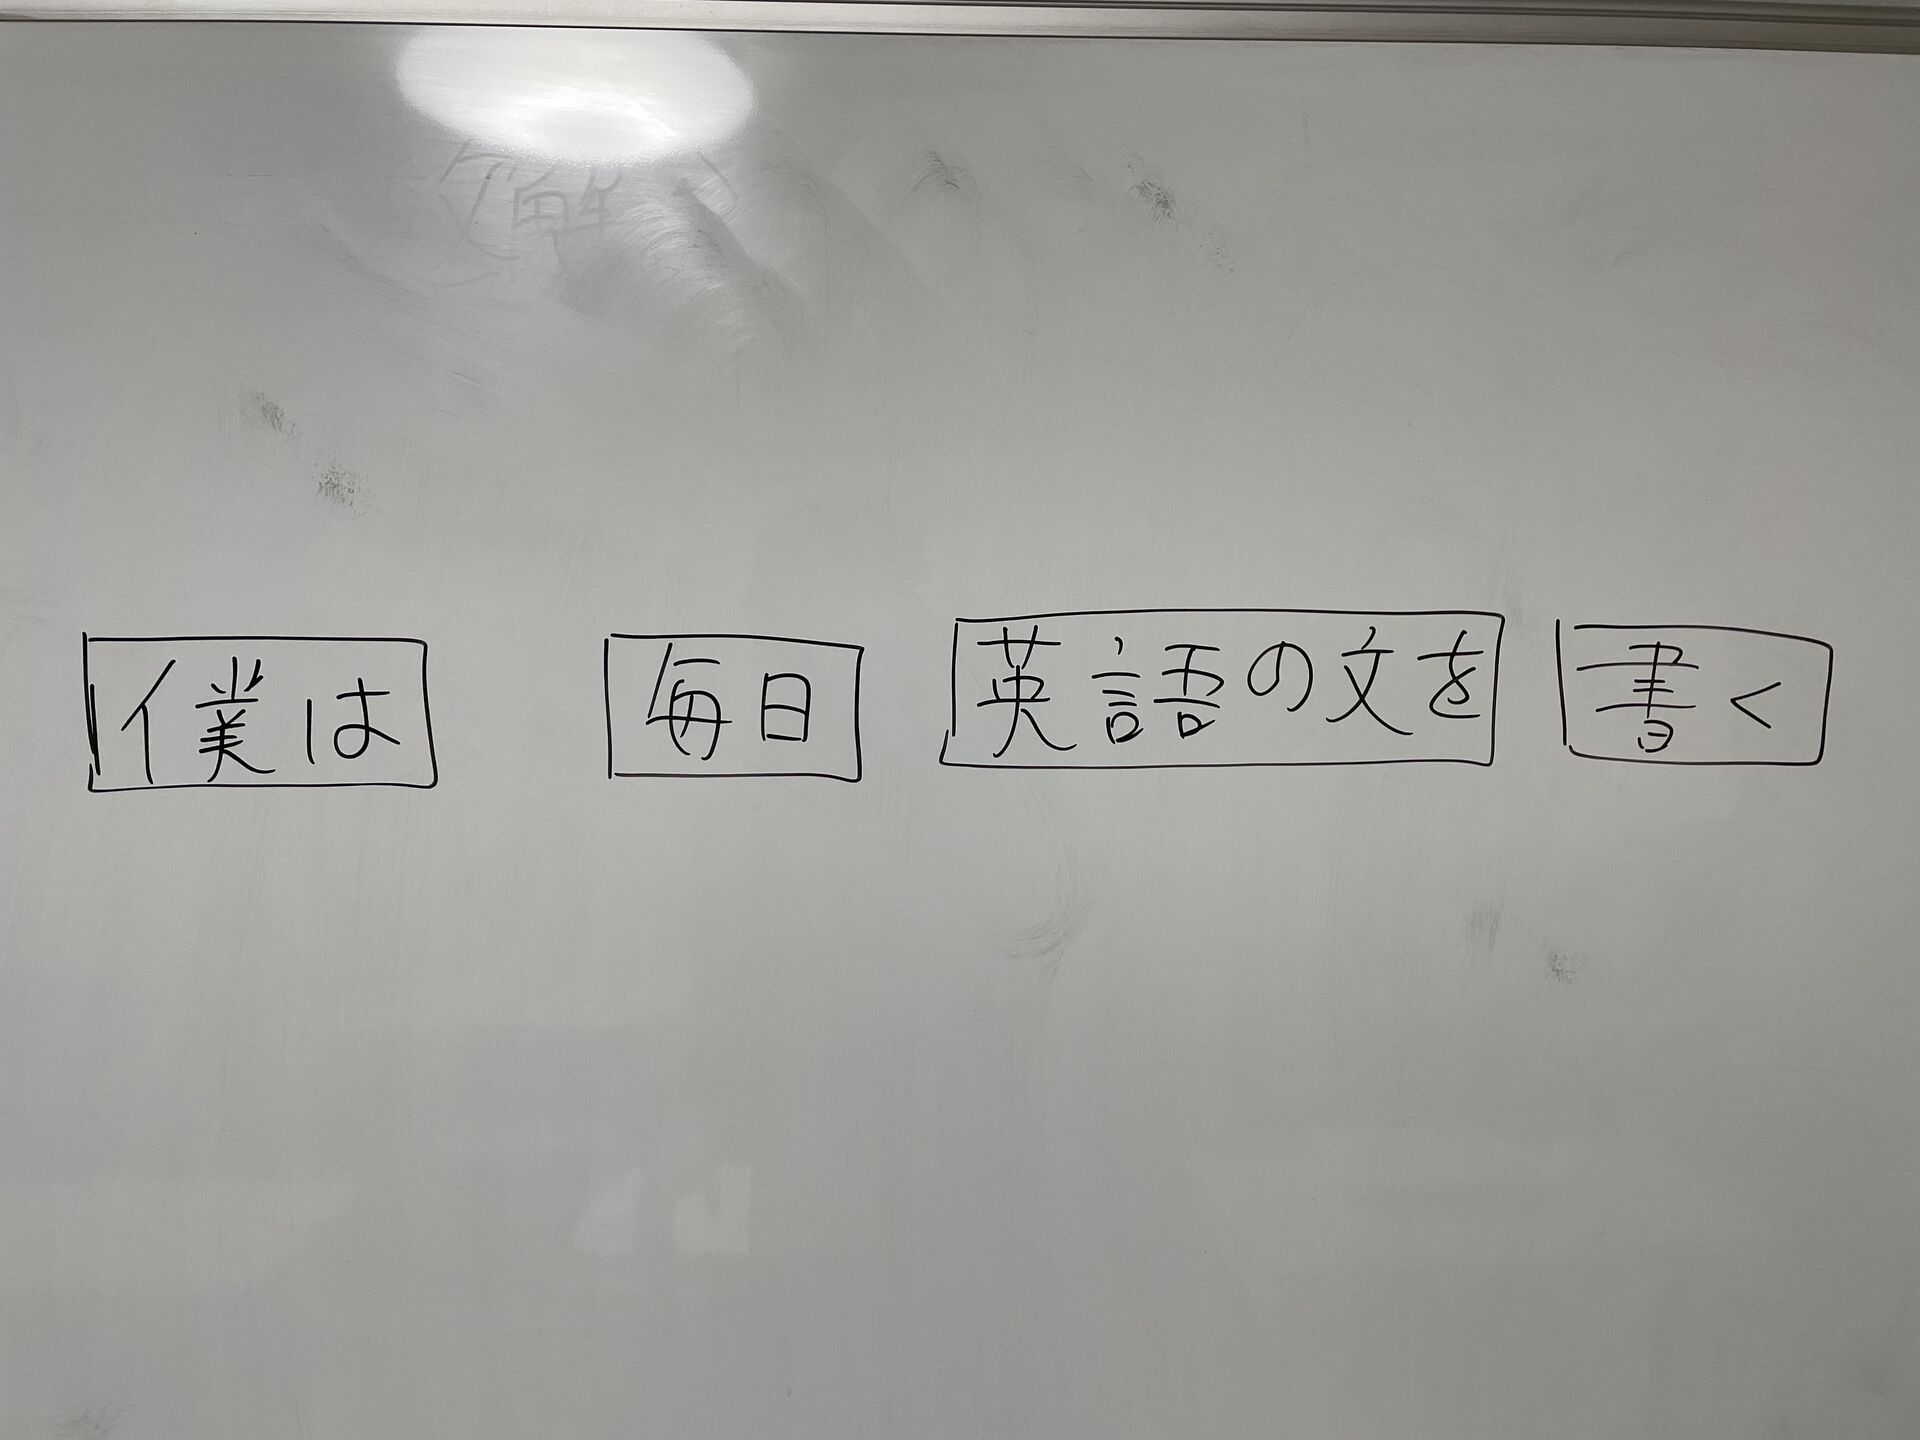 僕は 毎日 英語の文を 書く